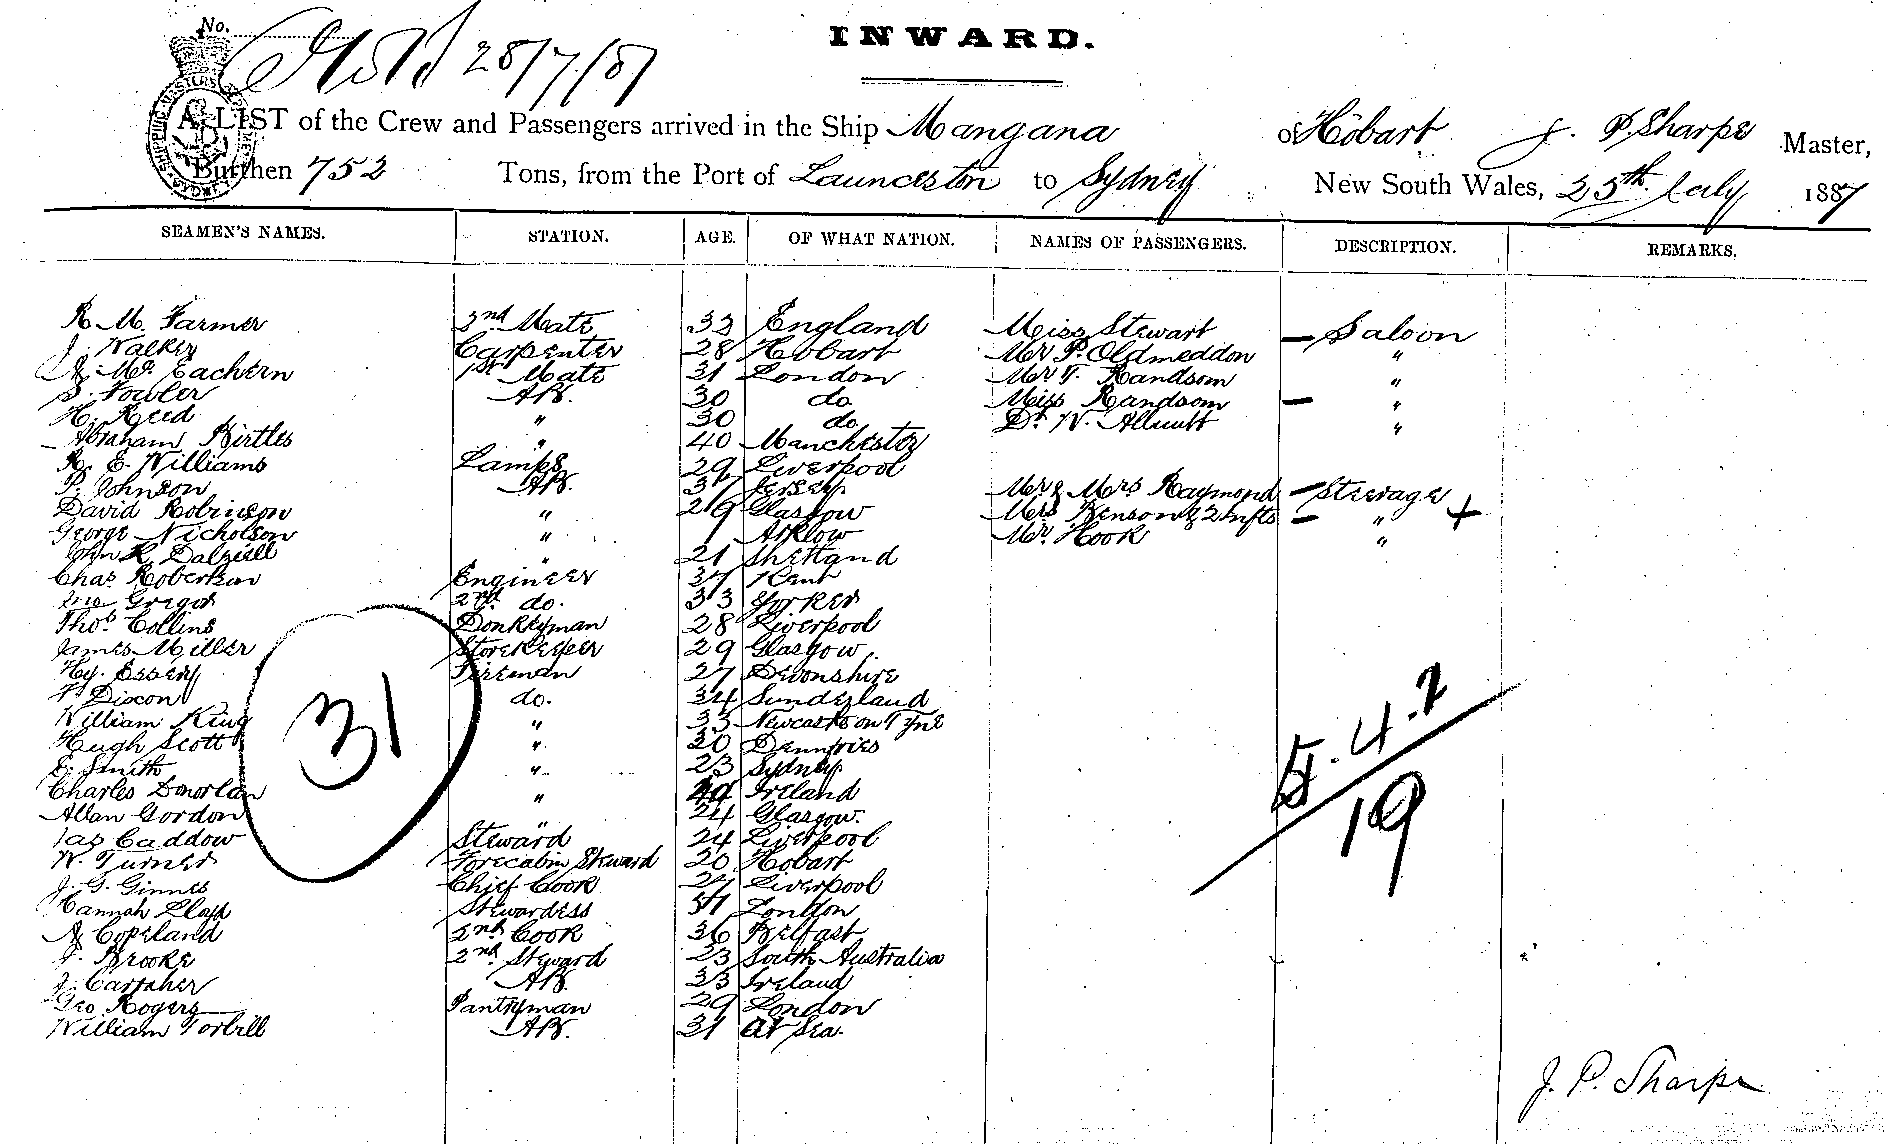 No.
INWARD.
28/7/87
A LIST of the Crew and Passengers arrived in the Ship Mangana of Hobart J. P. Sharpe Master,
Burthen 752 Tons, from the Port of Launceston to Sydney New South Wales, 25th July 1887
SEAMEN'S NAMES. STATION. AGE. OF WHAT NATION. NAMES OF PASSENGERS. DESCRIPTION. REMARKS.
R. M. Farmer 2nd Mate 33 England Miss Stewart — Saloon
J. Walker Carpenter 28 Hobart Mr P. Oldmeddon "
A. Mc Eachern 1st Mate 31 London Mr T. Randsom "
S. Fowler AB. 30 do Miss Randsom — "
H. Reed " 30 do. Dr W. Allnutt "
Abraham Birtles " 40 Manchester
R. E. Williams Lamps 29 Liverpool
P. Johnson AB. 37 Jersey Mr & Mrs Raymond — Steerage
David Robinson " 29 Glasgow Mrs Benson & 2 Infts — " +
George Nicholson " Arklow Mr. Hook "
John R. Dalziell " 21 Shetland
Chas Robertson Engineer 37 Kent
Gregor 2nd do. 33
Thos Collins Donkeyman 28 Liverpool
James Miller Storekeeper 29 Glasgow.
Hy. Essery Fireman 27 Devonshire
Dixon do. 34 Sunderland
William King " 33 Newcastle on Tyne
Hugh Scott " 20 Dumfries
E. Smith " 23 Sydney
Charles " Ireland
Allan Gordon " 24 Glasgow.
Jas Caddow Steward 24 Liverpool
W. Turner Forecabin Steward 20 Hobart
J. G. Ginnes Chief Cook 27 Liverpool
Hannah Lloyd Stewardess London
A. Copeland 2nd Cook 36 Belfast
Brooke 2nd Steward 23 South Australia
J. Carraher AB. 33 Ireland
Geo Rogers Pantryman 29 London
William Torbill AB. 31 At Sea.
31
5.4.2
19
J. P. Sharpe